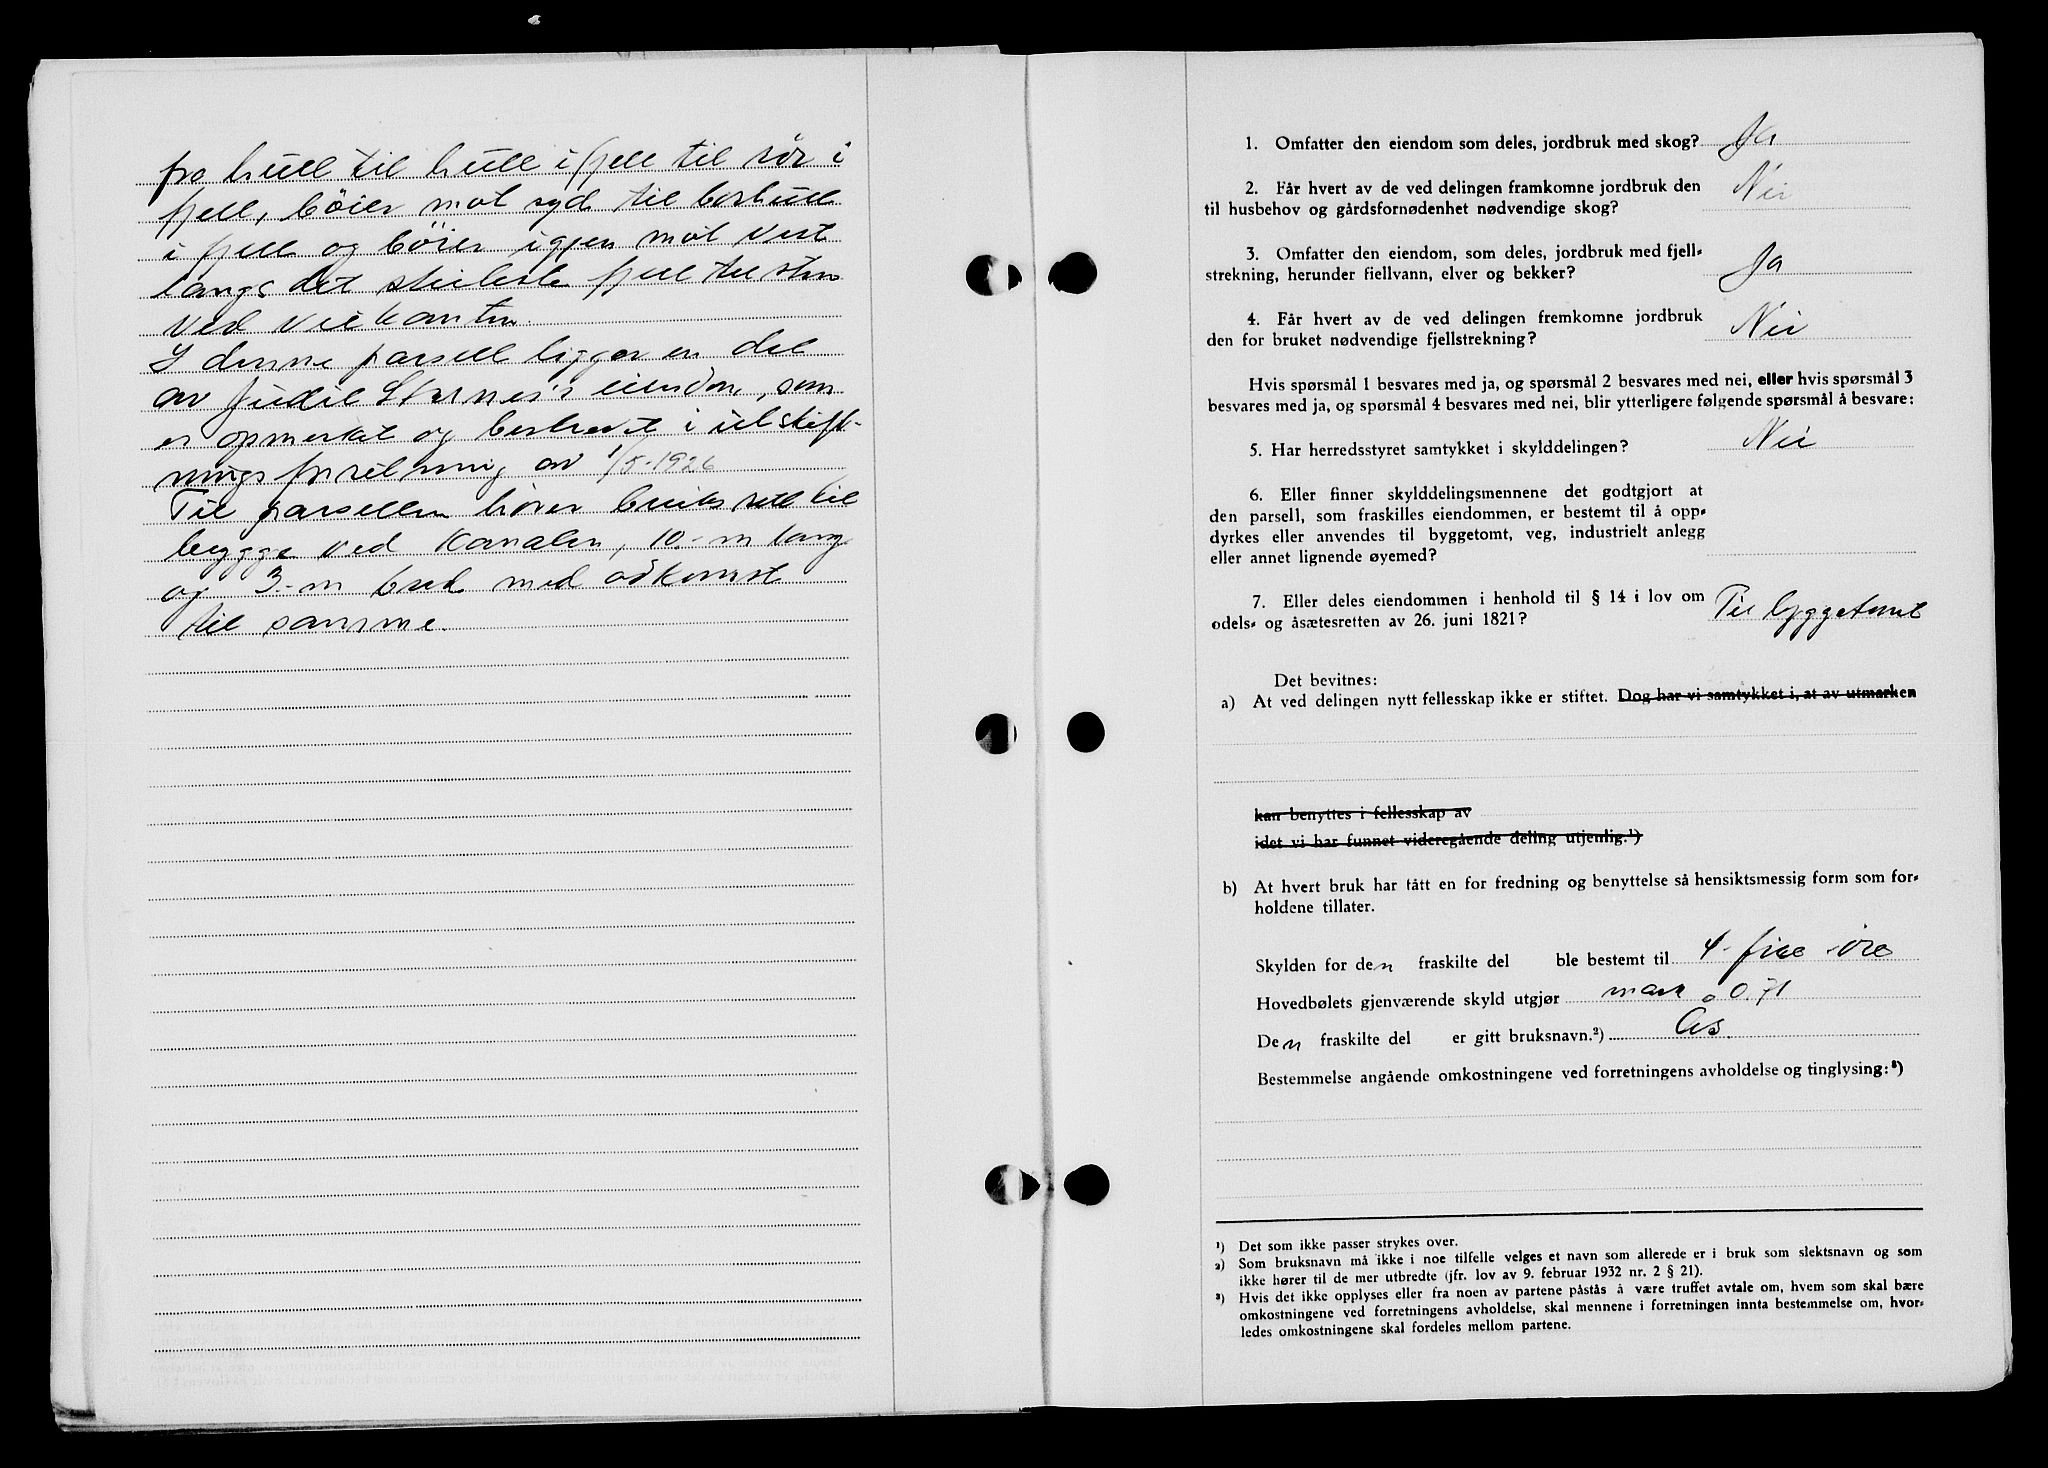 fra hull til hull i fjell til rör i
fjell, böier mot syd til borhull
i fjell og böier igjen mot vest
langs det steileste fjell til sten
ved veikanten.
I denne parsell ligger en del
av Judit Starnes's eiendom, som
er opmerket og beskrevet i utskift-
nings forretning av 1/5-1926
Til parsellen hörer bruks rett til
brygge ved Kanalen, 10.-m lang
og 3.-m bred med adkomst
til samme.
1. Omfatter den eiendom som deles, jordbruk med skog? Ja
2. Får hvert av de ved delingen framkomne jordbruk den Nei
til husbehov og gårdsfornødenhet nødvendige skog?
3. Omfatter den eiendom, som deles, jordbruk med fjell-
strekning, herunder fiellvann, elver og bekker? Ja
4. Får hvert av de ved delingen fremkomne jordbruk Nei
den for bruket nødvendige fjellstrekning?
Hvis spørsmål 1 besvares med ja, og spørsmål 2 besvares med nei, eller hvis spørsmål 3
besvares med ja, og spørsmål 4 besvares med nei, blir ytterligere følgende spørsmål å besvare:
5. Har herredsstyret samtykket i skylddelingen? Nei
6. Eller finner skylddelingsmennene det godtgjort at
den parsell, som fraskilles eiendommen, er bestemt til å opp-
dyrkes eller anvendes til byggetomt, veg, industrielt anlegg
eller annet lignende øyemed?
7. Eller deles eiendommen i henhold til § 14 i lov om Til byggetomt
odels- og åsætesretten av 26. juni 1821?
Det bevitnes:
a) At ved delingen nytt fellesskap ikke er stiftet. Dog har vi samtykket i, at av utmarken
kan benyttes i fellesskap av
idet vi har funnet videregående deling utjenlig.¹)
b) At hvert bruk har fått en for fredning og benyttelse så hensiktsmessig form som for-
holdene tillater.
Skylden for den fraskilte del ble bestemt til 4- fire -öre
Hovedbølets gjenværende skyld utgjør mark 0.71
Den fraskilte del er gitt bruksnavn.²) Ås.
Bestemmelse angående omkostningene ved forretningens avholdelse og tinglysing:³)
¹) Det som ikke passer strykes over.
²) Som bruksnavn må ikke i noe tilfelle velges et navn som allerede er i bruk som slektsnavn og som
ikke hører til de mer utbredte (jfr. lov av 9. februar 1932 nr. 2 § 21).
³) Hvis det ikke opplyses eller fra noen av partene påstås å være truffet avtale om, hvem som skal bære
omkostningene ved forretningens avholdelse, skal mennene i forretningen innta bestemmelse om, hvor-
ledes omkostningene skal fordeles mellom partene.